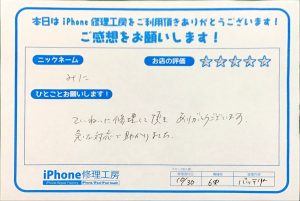 本日は iPhone 修理工房をご利用頂きありがとうございます!
ご感想をお願いします!
ニックネーム
お店の評価 ☆☆☆☆☆
みに
ひとことお願いします!
ていねいに修理して頂き ありがとうございます
急な対応で助かりました
iPhone修理工房
バッテリー